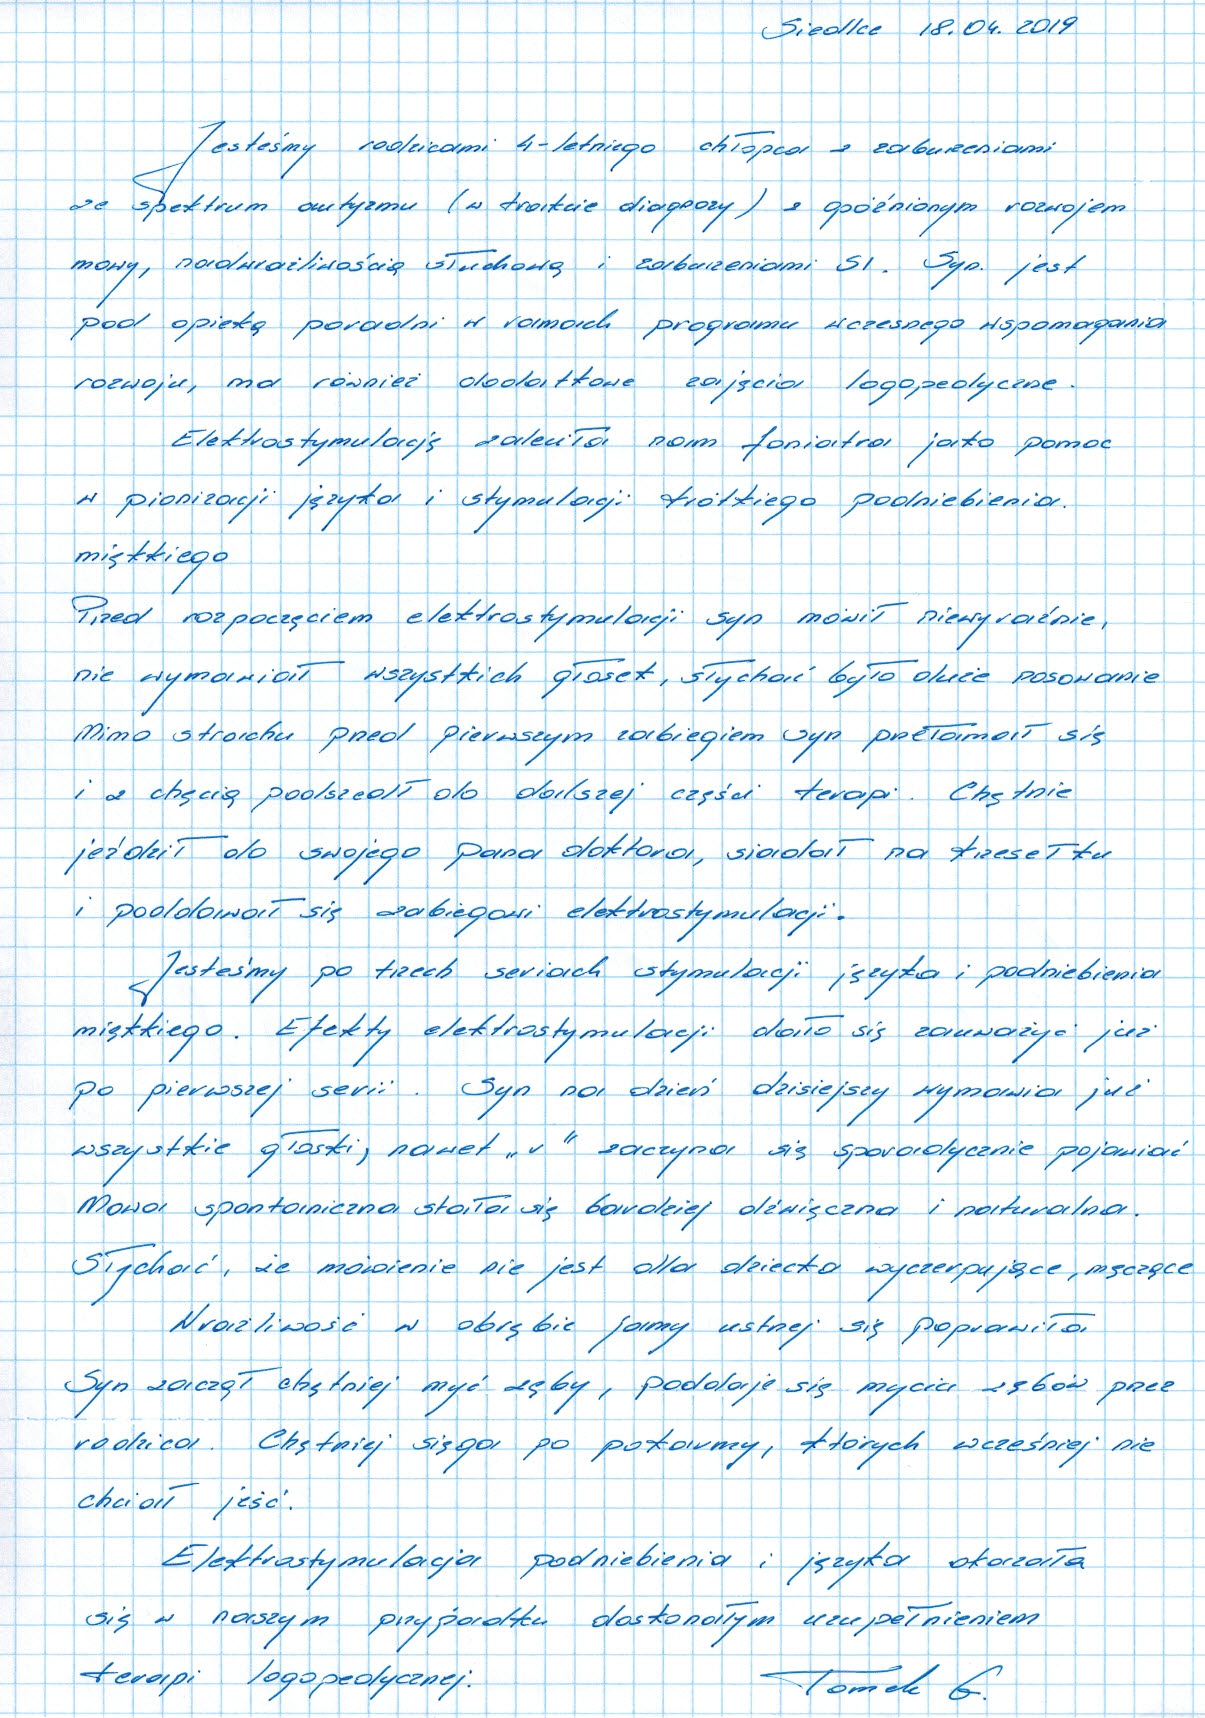 Siedlce 18.04.2019
Jesteśmy rodzicami 4-letniego chłopca z zaburzeniami
ze spektrum autyzmu (w trakcie diagnozy) z opóźnionym rozwojem
mowy, nadwrażliwością słuchową i zaburzeniami SI. Syn jest
pod opieką poradni w ramach programu wczesnego wspomagania
rozwoju, ma również dodatkowe zajęcia logopedyczne.
Elektrostymulację zaleciła nam foniatra jako pomoc
w pionizacji języka i stymulacji krótkiego podniebienia.
miękkiego
Przed rozpoczęciem elektrostymulacji syn mówił niewyraźnie,
nie wymawiał wszystkich głosek, słychać było duże nosowanie
Mimo strachu przed pierwszym zabiegiem syn przełamał się
i z chęcią podszedł do dalszej części terapi. Chętnie
jeździł do swojego pana doktora, siadał na krzesełku
i poddawał się zabiegowi elektrostymulacji.
Jesteśmy po trzech seriach stymulacji języka i podniebienia
miękkiego. Efekty elektrostymulacji dało się zauważyć już
po pierwszej serii. Syn na dzień dzisiejszy wymawia już
wszystkie głoski, nawet „r" zaczyna się sporadycznie pojawiać
Mowa spontaniczna stała się bardziej dźwięczna i naturalna.
Słychać, że mówienie nie jest dla dziecka wyczerpujące, męczące
Wrażliwość w obrębie jamy ustnej się poprawiła
Syn zaczął chętniej myć zęby, poddaje się myciu zębów przez
rodzica. Chętniej sięga po pokarmy, których wcześniej nie
chciał jeść.
Elektrostymulacja podniebienia i języka okazała
się w naszym przypadku doskonałym uzupełnieniem
terapi logopedycznej. Tomek G.